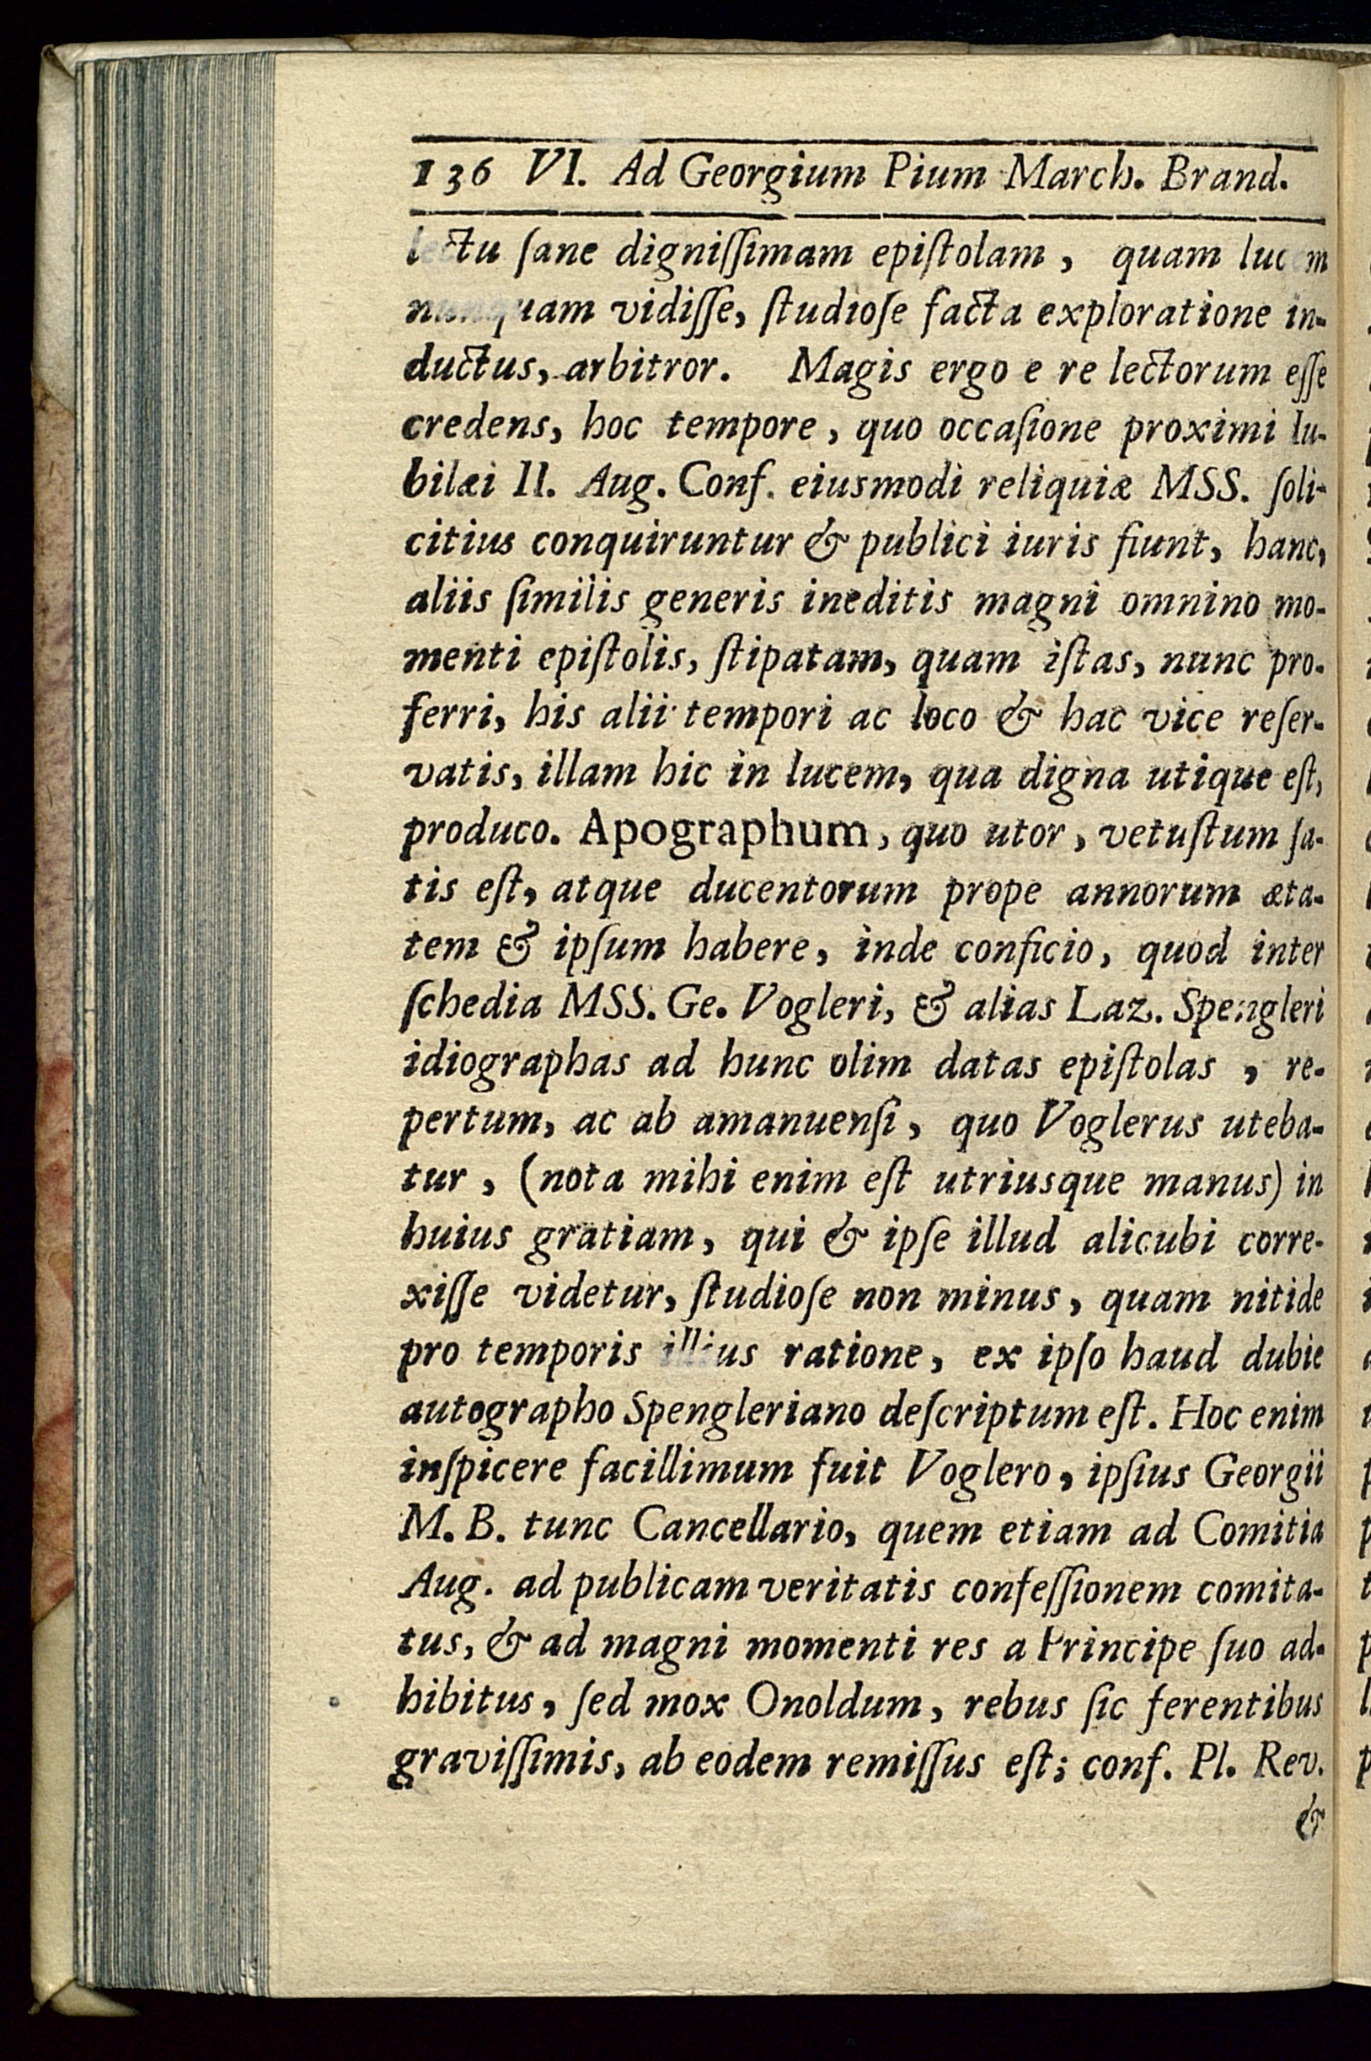 136 VI. Ad Georgium Pium March. Brand.
lectu ſane digniſſimam epiſtolam, quam lucem
nunquam vidiſſe, ſtudioſe facta exploratione in-
ductus, arbitror. Magis ergo e re lectorum eſſe
credens, hoc tempore, quo occaſione proximi Iu-
bilæi II. Aug. Conf. eiusmodi reliquiæ MSS. ſoli-
citius conquiruntur & publici iuris fiunt, hanc,
aliis ſimilis generis ineditis magni omnino mo-
menti epiſtolis, ſtipatam, quam iſtas, nunc pro-
ferri, his alii tempori ac loco & hac vice reſer-
vatis, illam hic in lucem, qua digna utique eſt,
produco. Apographum, quo utor, vetuſtum ſa-
tis eſt, atque ducentorum prope annorum æta-
tem & ipſum habere, inde conficio, quod inter
ſchedia MSS. Ge. Vogleri, & alias Laz. Spengleri
idiographas ad hunc olim datas epiſtolas, re-
pertum, ac ab amanuenſi, quo Voglerus uteba-
tur, (nota mihi enim eſt utriusque manus) in
huius gratiam, qui & ipſe illud alicubi corre-
xiſſe videtur, ſtudioſe non minus, quam nitide
pro temporis illius ratione, ex ipſo haud dubie
autographo Spengleriano deſcriptum eſt. Hoc enim
inſpicere facillimum fuit Voglero, ipſius Georgii
M. B. tunc Cancellario, quem etiam ad Comitia
Aug. ad publicam veritatis confeſſionem comita-
tus, & ad magni momenti res a Principe ſuo ad-
hibitus, ſed mox Onoldum, rebus ſic ferentibus
graviſſimis, ab eodem remiſſus eſt; conf. Pl. Rev.
&